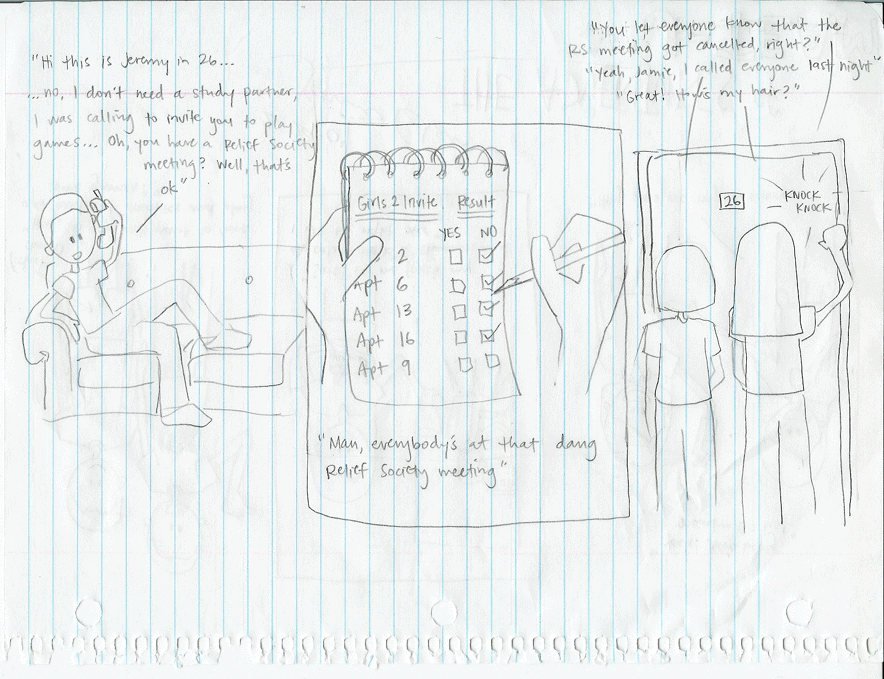 "Hi this is Jeremy in 26...
...no, I don't need a study partner,
I was calling to invite you to play
games... Oh, you have a Relief Society
meeting? Well, that's
ok"
Girls 2 Invite Result
YES NO
2
Apt 6
Apt 13
Apt 16
Apt 9
"Man, everybody's at that dang
Relief Society meeting"
"You let everyone know that the
RS meeting got cancelled, right?"
"Yeah, Jamie, I called everyone last night"
"Great! How's my hair?"
26
KNOCK
KNOCK